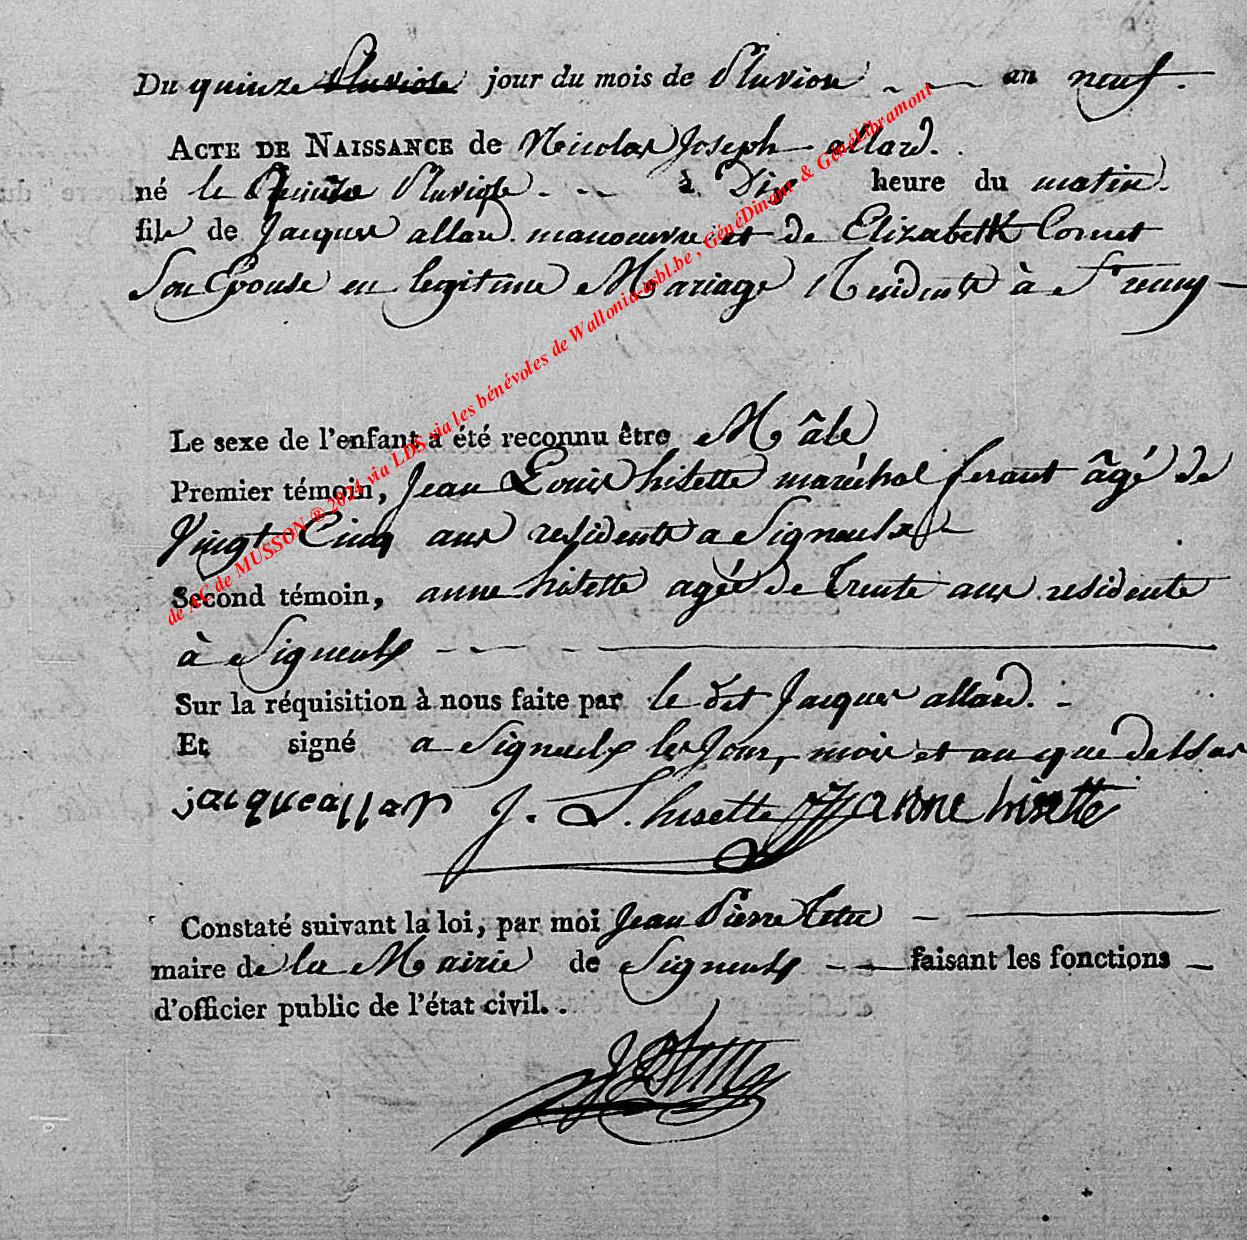 Du quinze Pluviose jour du mois de Pluviose an neuf.
ACTE DE NAISSANCE de Nicolas Joseph allard.
né le Quinze Pluviose à Dix heure du matin.
fils de Jacques allard manoeuvre et de Elizabeth Cornet
Son Epouse en legitime Mariage Residente à St remy
Le sexe de l'enfant a été reconnu être Mâle
Premier témoin, Jean Louis hisette maréchal ferant âgé de
Vingt Cinq ans residente a Signeulx
Second témoin, anne hisette agée de Trente ans residente
à Signeulx
Sur la réquisition à nous faite par le dit Jacques allard.
Et signé a Signeulx les Jour, mois et an que dessus
jacque allard J. L. hisette anne hisette
Constaté suivant la loi, par moi Jean Pierre
maire de la Mairie de Signeulx faisant les fonctions
d'officier public de l'état civil.
de AC de MUSSON ® 2024 via LDS via les bénévoles de Wallonia-asbl.be , GénéDinant & GénéLibramont